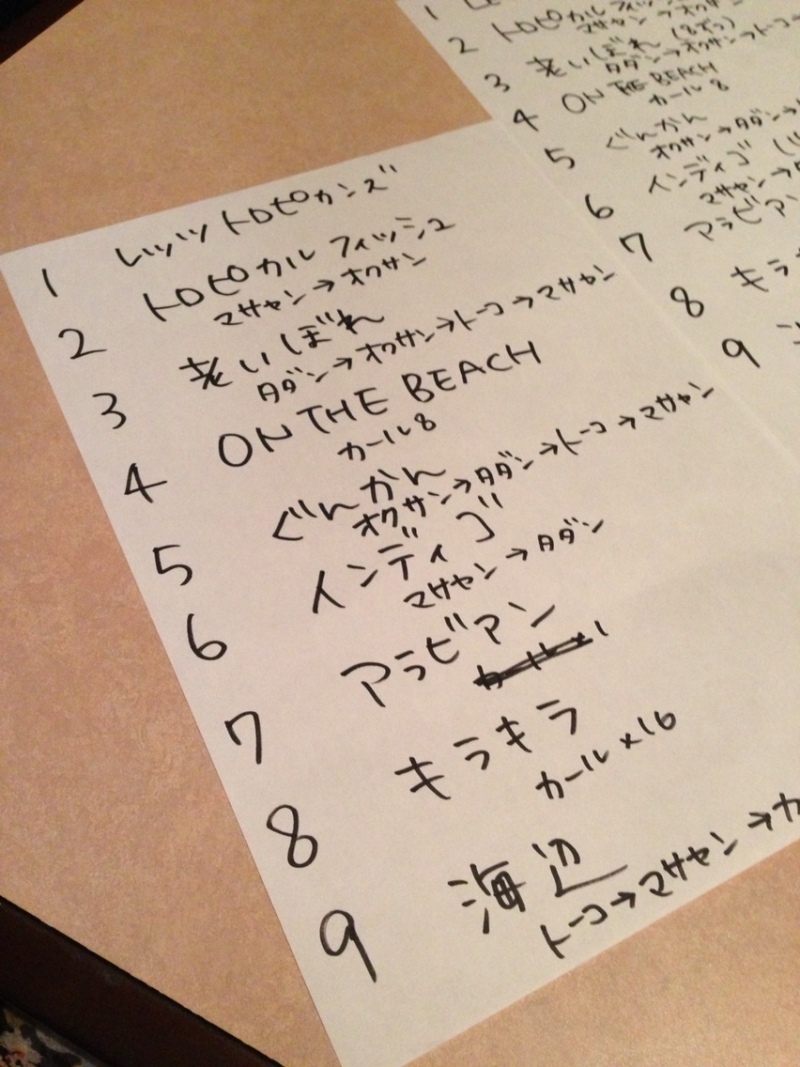 1 レッツトロピカンズ
2 トロピカルフィッシュ
マサヤン→オクサン
3 老いぼれ
タダシ→オクサン→トーコ→マサヤン
4 ON THE BEACH
カール8
5 ぐんかん
オクサン→タダシ→トーコ→マサヤン
6 インディゴ
マサヤン→タダシ
7 アラビアン
8 キラキラ
カール×16
9 海辺
トーコ→マサヤン→カ
1
2 トロピカルフィッ
マサヤン→オクサン
3 老いぼれ
タダシ→オクサン→トーコ
4 ON THE BEACH
カール8
5 ぐんかん
オクサン→タダシ→
6 インディゴ
マサヤン→タ
7 アラビアン
8 キラキ
9